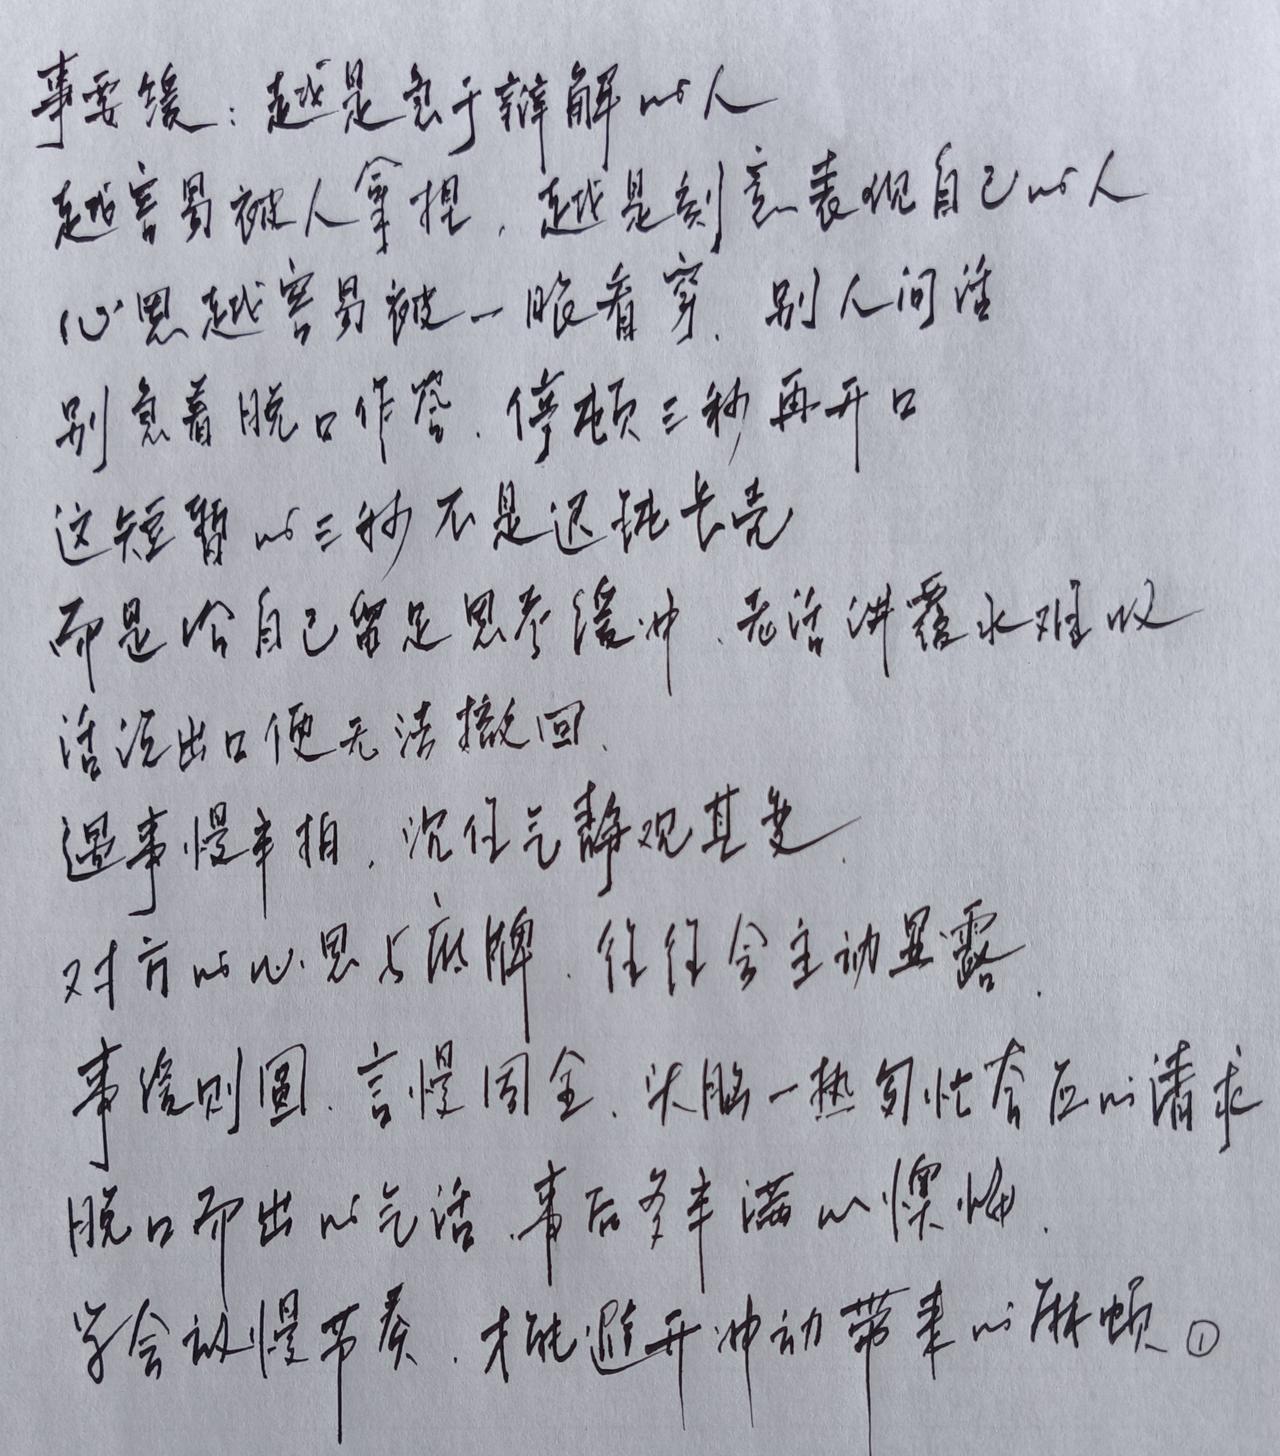 事要缓：越是急于辩解的人
越容易被人拿捏，越是刻意表现自己的人
心思越容易被一眼看穿，别人问话
别急着脱口作答，停顿三秒再开口
这短暂的三秒不是迟钝长壳
而是给自己留足思考缓冲，老话讲覆水难收
话说出口便无法撤回，
遇事慢半拍，沉住气静观其变，
对方的心思与底牌，往往会主动显露，
事缓则圆，言慢周全，头脑一热匆忙答应的请求
脱口而出的气话，事后多半满心懊悔，
学会放慢节奏，才能避开冲动带来的麻烦①